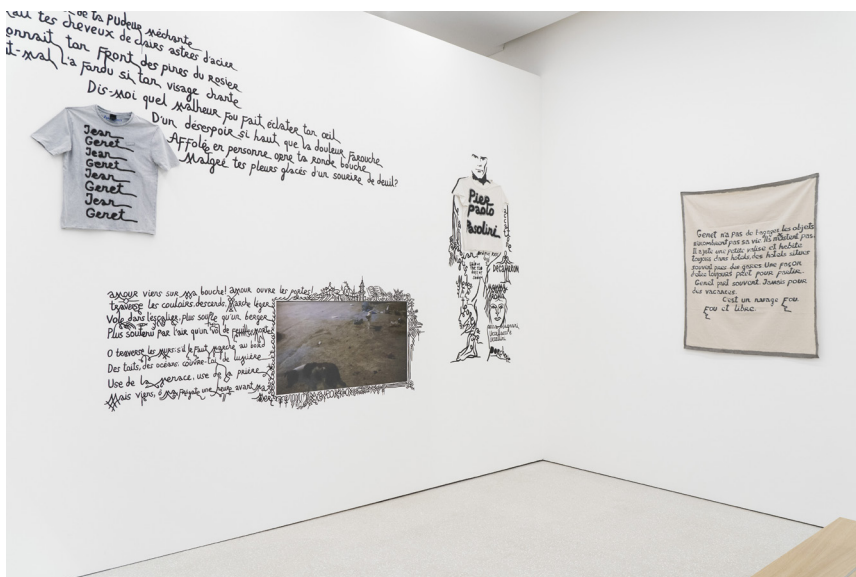 de ta pudeur méchante
tes cheveux de clairs astres d'acier
ton front des pines du rosier
t-mal l'a fardu si ton visage chante
Dis-moi quel malheur fou fait éclater ton œil
D'un désespoir si haut que la douleur farouche
Affolée en personne orne ta ronde bouche
Malgré tes pleurs glacés d'un sourire de deuil?
Jean
Genet
Jean
Genet
Jean
Genet
Jean
Genet
amour viens sur ma bouche! amour ouvre les portes!
traverse les couloirs, descends, marche léger
Vole dans l'escalier plus souple qu'un berger
Plus soutenu par l'air qu'un vol de feuilles mortes
O traverse les murs; s'il le faut marche au bord
Des toits, des océans, couvre-toi de lumière
Use de la menace, use de la prière
Mais viens, ô ma frégate une heure avant ma
Pier
paolo
Pasolini
DECAMERON
Genet n'a pas de bagages les objets
n'encombrent pas sa vie ils n'existent pas.
Il a une petite valise et habite
toujours dans hotels, des hotels situés
souvent près des gares Une façon
d'être toujours prêt pour partir.
Genet part souvent Jamais pour
des vacances.
C'est un voyage fou
fou et libre.